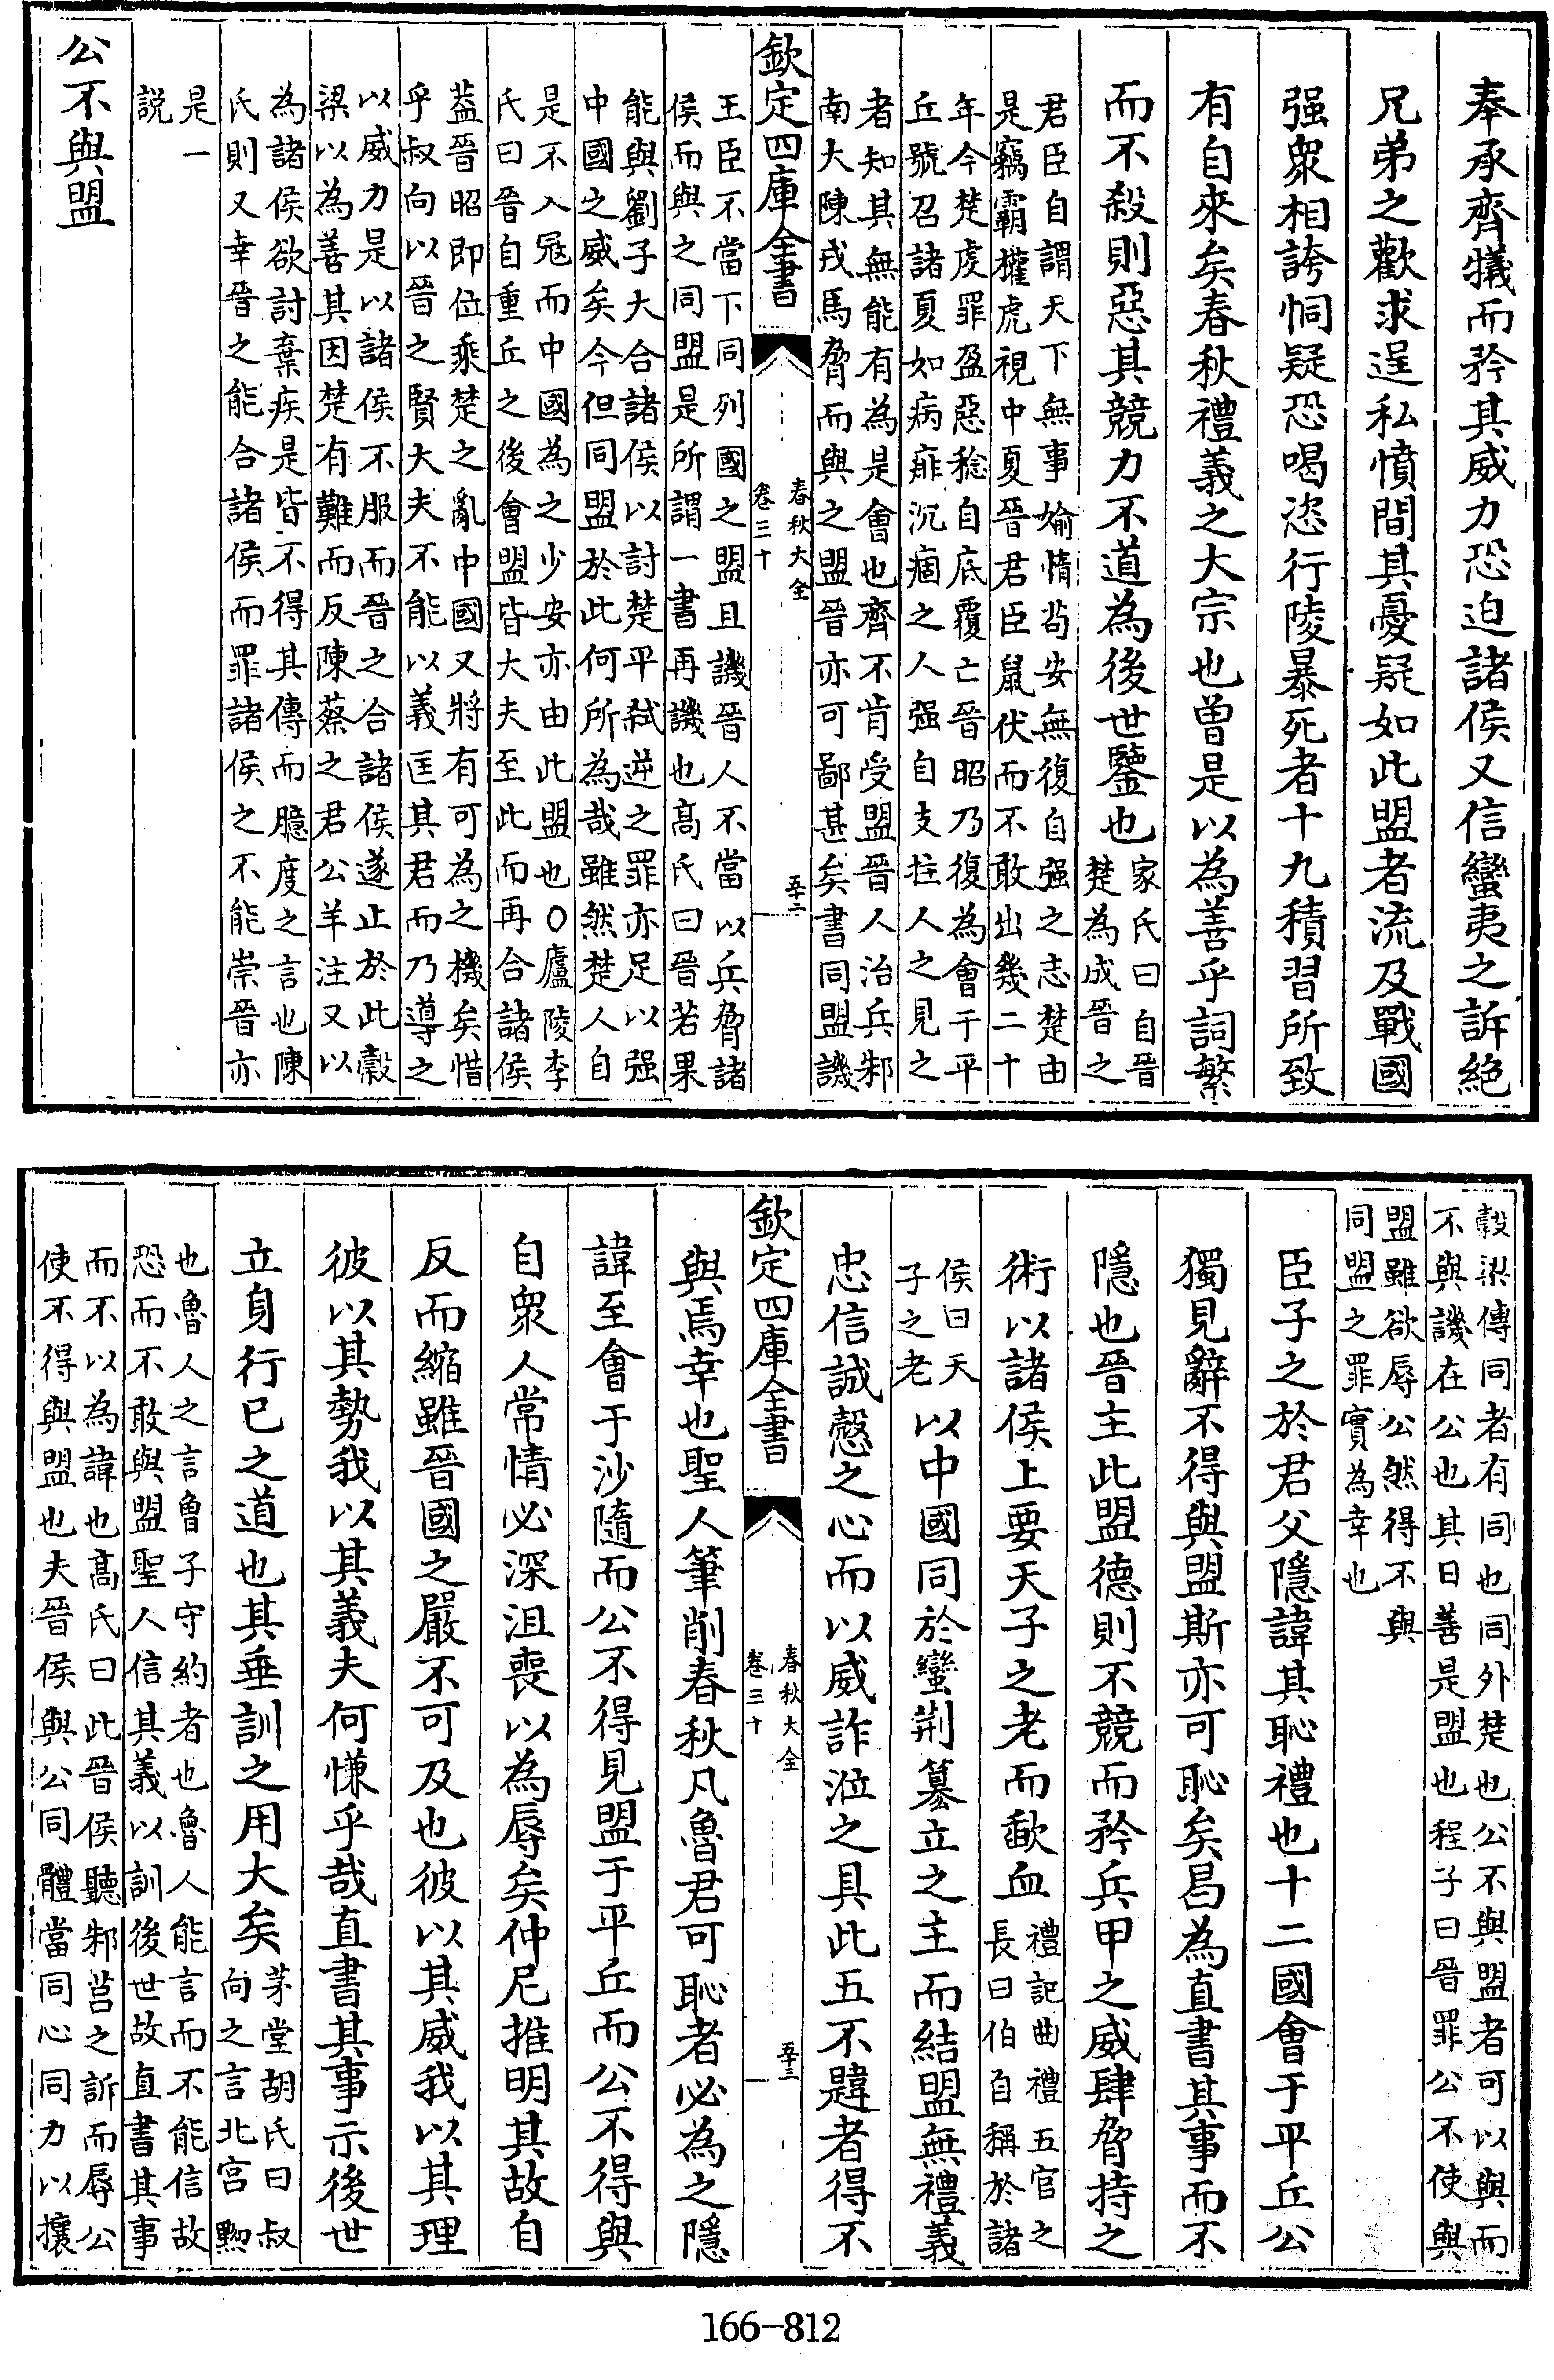 奉承齊犧而矜其威力恐迫諸侯又信蠻夷之訴絶
兄弟之歡求逞私憤間其憂疑如此盟者流及戰國
强衆相誇恫疑恐喝恣行陵暴死者十九積習所致
有自來矣春秋禮義之大宗也曾是以為善乎詞繁
而不殺則惡其競力不道為後世鑒也
家氏曰自晉
楚為成晉之
君臣自謂天下無事媮惰茍安無復自强之志楚由
是竊霸權虎視中夏晉君臣鼠伏而不敢出幾二十
年今楚虔罪盈惡稔自底覆亡晉昭乃復為會于平
丘號召諸夏如病痱沉痼之人强自支拄人之見之
者知其無能有為是會也齊不肯受盟晉人治兵邾
南大陳戎馬脅而與之盟晉亦可鄙甚矣書同盟譏
欽定四庫全書
春秋大全
卷三十
五十二
王臣不當下同列國之盟且譏晉人不當以兵脅諸
侯而與之同盟是所謂一書再譏也髙氏曰晉若果
能與劉子大合諸侯以討楚平弑逆之罪亦足以强
中國之威矣今但同盟於此何所為哉雖然楚人自
是不入冦而中國為之少安亦由此盟也○廬陵李
氏曰晉自重丘之後會盟皆大夫至此而再合諸侯
葢晉昭即位乘楚之亂中國又將有可為之機矣惜
乎叔向以晉之賢大夫不能以義匡其君而乃導之
以威力是以諸侯不服而晉之合諸侯遂止於此糓
梁以為善其因楚有難而反陳蔡之君公羊注又以
為諸侯欲討棄疾是皆不得其傳而臆度之言也陳
氏則又幸晉之能合諸侯而罪諸侯之不能崇晉亦
是一
説
公不與盟
糓梁傳同者有同也同外楚也公不與盟者可以與而
不與譏在公也其日善是盟也程子曰晉罪公不使與
盟雖欲辱公然得不與
同盟之罪實為幸也
臣子之於君父隱諱其恥禮也十二國會于平丘公
獨見辭不得與盟斯亦可恥矣曷為直書其事而不
隱也晉主此盟德則不競而矜兵甲之威肆脅持之
術以諸侯上要天子之老而歃血
禮記曲禮五官之
長曰伯自稱於諸
侯曰天
子之老
以中國同於蠻荆簒立之主而結盟無禮義
忠信誠慤之心而以威詐涖之具此五不韙者得不
欽定四庫全書
春秋大全
卷三十
五十三
與焉幸也聖人筆削春秋凡魯君可恥者必為之隱
諱至會于沙隨而公不得見盟于平丘而公不得與
自衆人常情必深沮喪以為辱矣仲尼推明其故自
反而縮雖晉國之嚴不可及也彼以其威我以其理
彼以其勢我以其義夫何慊乎哉直書其事示後世
立身行已之道也其垂訓之用大矣
茅堂胡氏曰叔
向之言北宫黝
也魯人之言曾子守約者也魯人能言而不能信故
恐而不敢與盟聖人信其義以訓後世故直書其事
而不以為諱也髙氏曰此晉侯聽邾莒之訴而辱公
使不得與盟也夫晉侯與公同體當同心同力以攘
166-812